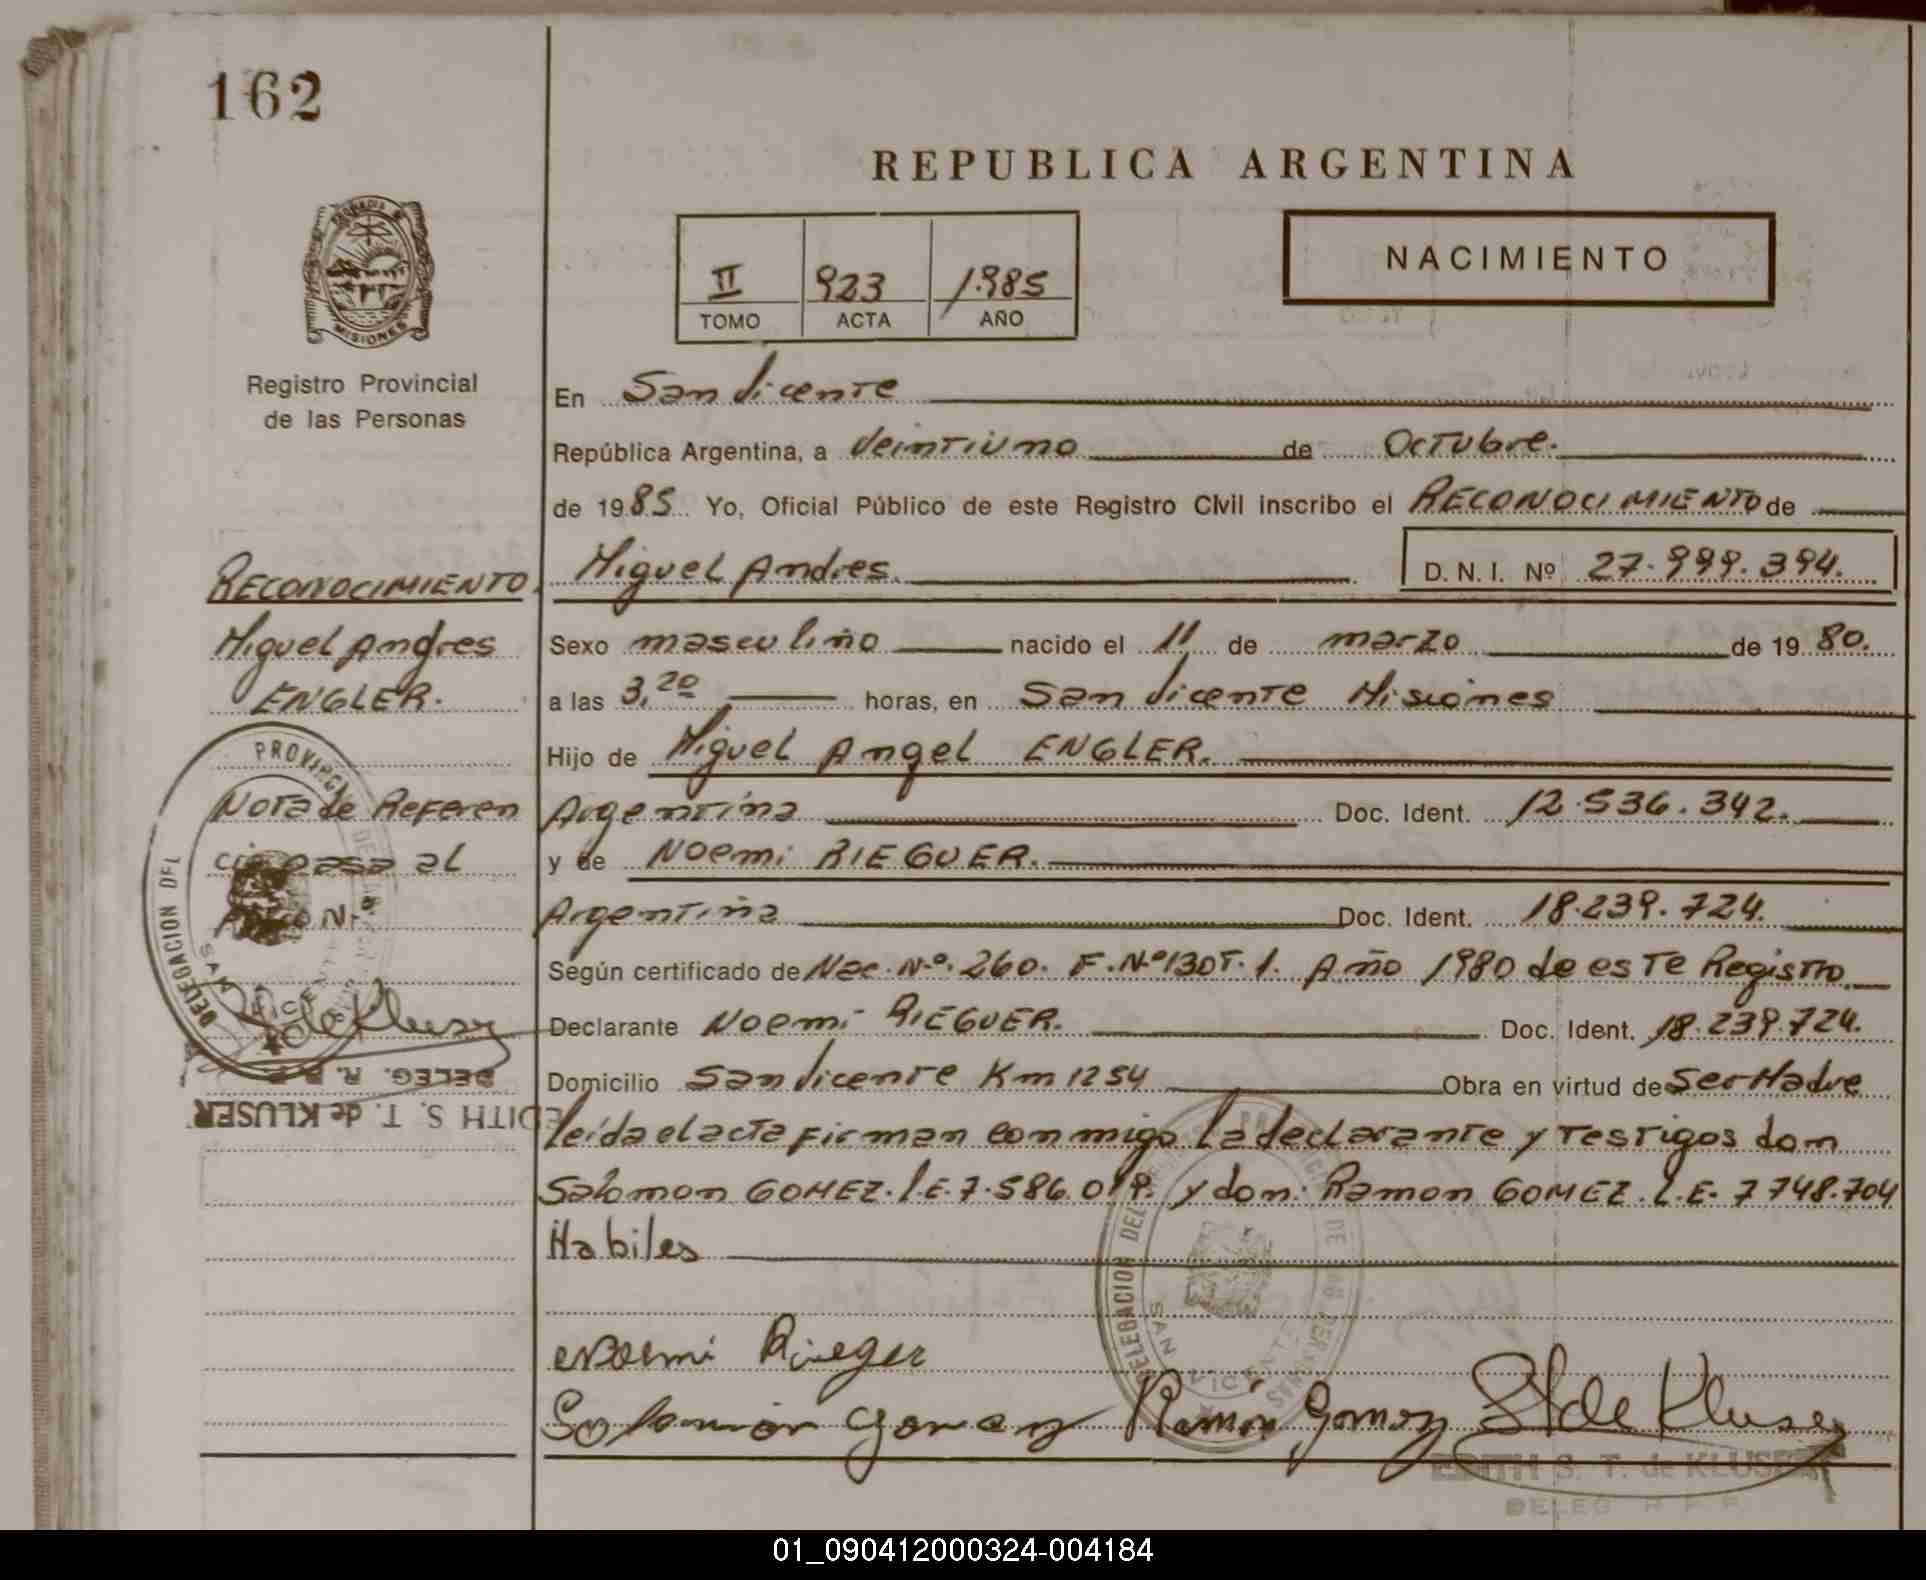 162
REPUBLICA ARGENTINA
MISIONES
Registro Provincial
de las Personas
II 923 1.985
TOMO ACTA AÑO
NACIMIENTO
En San Vicente
República Argentina, a Veintiuno de Octubre.
de 1985 Yo, Oficial Público de este Registro Civil inscribo el RECONOCIMIENTO de
Miguel Andres. D. N. I. Nº 27.999.394.
Sexo masculino nacido el 11 de marzo de 1980.
a las 3,20 horas, en San Vicente Misiones
Hijo de Miguel Angel ENGLER.
Argentina Doc. Ident. 12.536.342.
y de Noemi RIEGUER.
Argentina Doc. Ident. 18.239.724.
Según certificado de Nac. N.º 260. F. Nº 130 T. 1. Año 1980 de este Registro.
Declarante Noemi RIEGUER. Doc. Ident. 18.239.724.
Domicilio San Vicente Km 1254 Obra en virtud de Ser Madre
leída el acta firman conmigo la declarante y testigos don
Salomon GOMEZ. L.E. 7.586.019. y don Ramon GOMEZ. L.E. 7748.704
Habiles
Noemi Rieger
Salomón Gomez Ramón Gomez St de Kluser
EDITH S. T. de KLUSER
DELEG R P P
RECONOCIMIENTO.
Miguel Andres
ENGLER.
Nota de Referen
cia pasa al
N.º
St de Kluser
DELEG. R. P. P.
EDITH S. T. de KLUSER
PROVINCIAL DE LAS PERSONAS
DELEGACION DEL
SAN VICENTE
DELEGACION DEL
PROVINCIAL DE LAS PERSONAS
SAN VICENTE
01_090412000324-004184